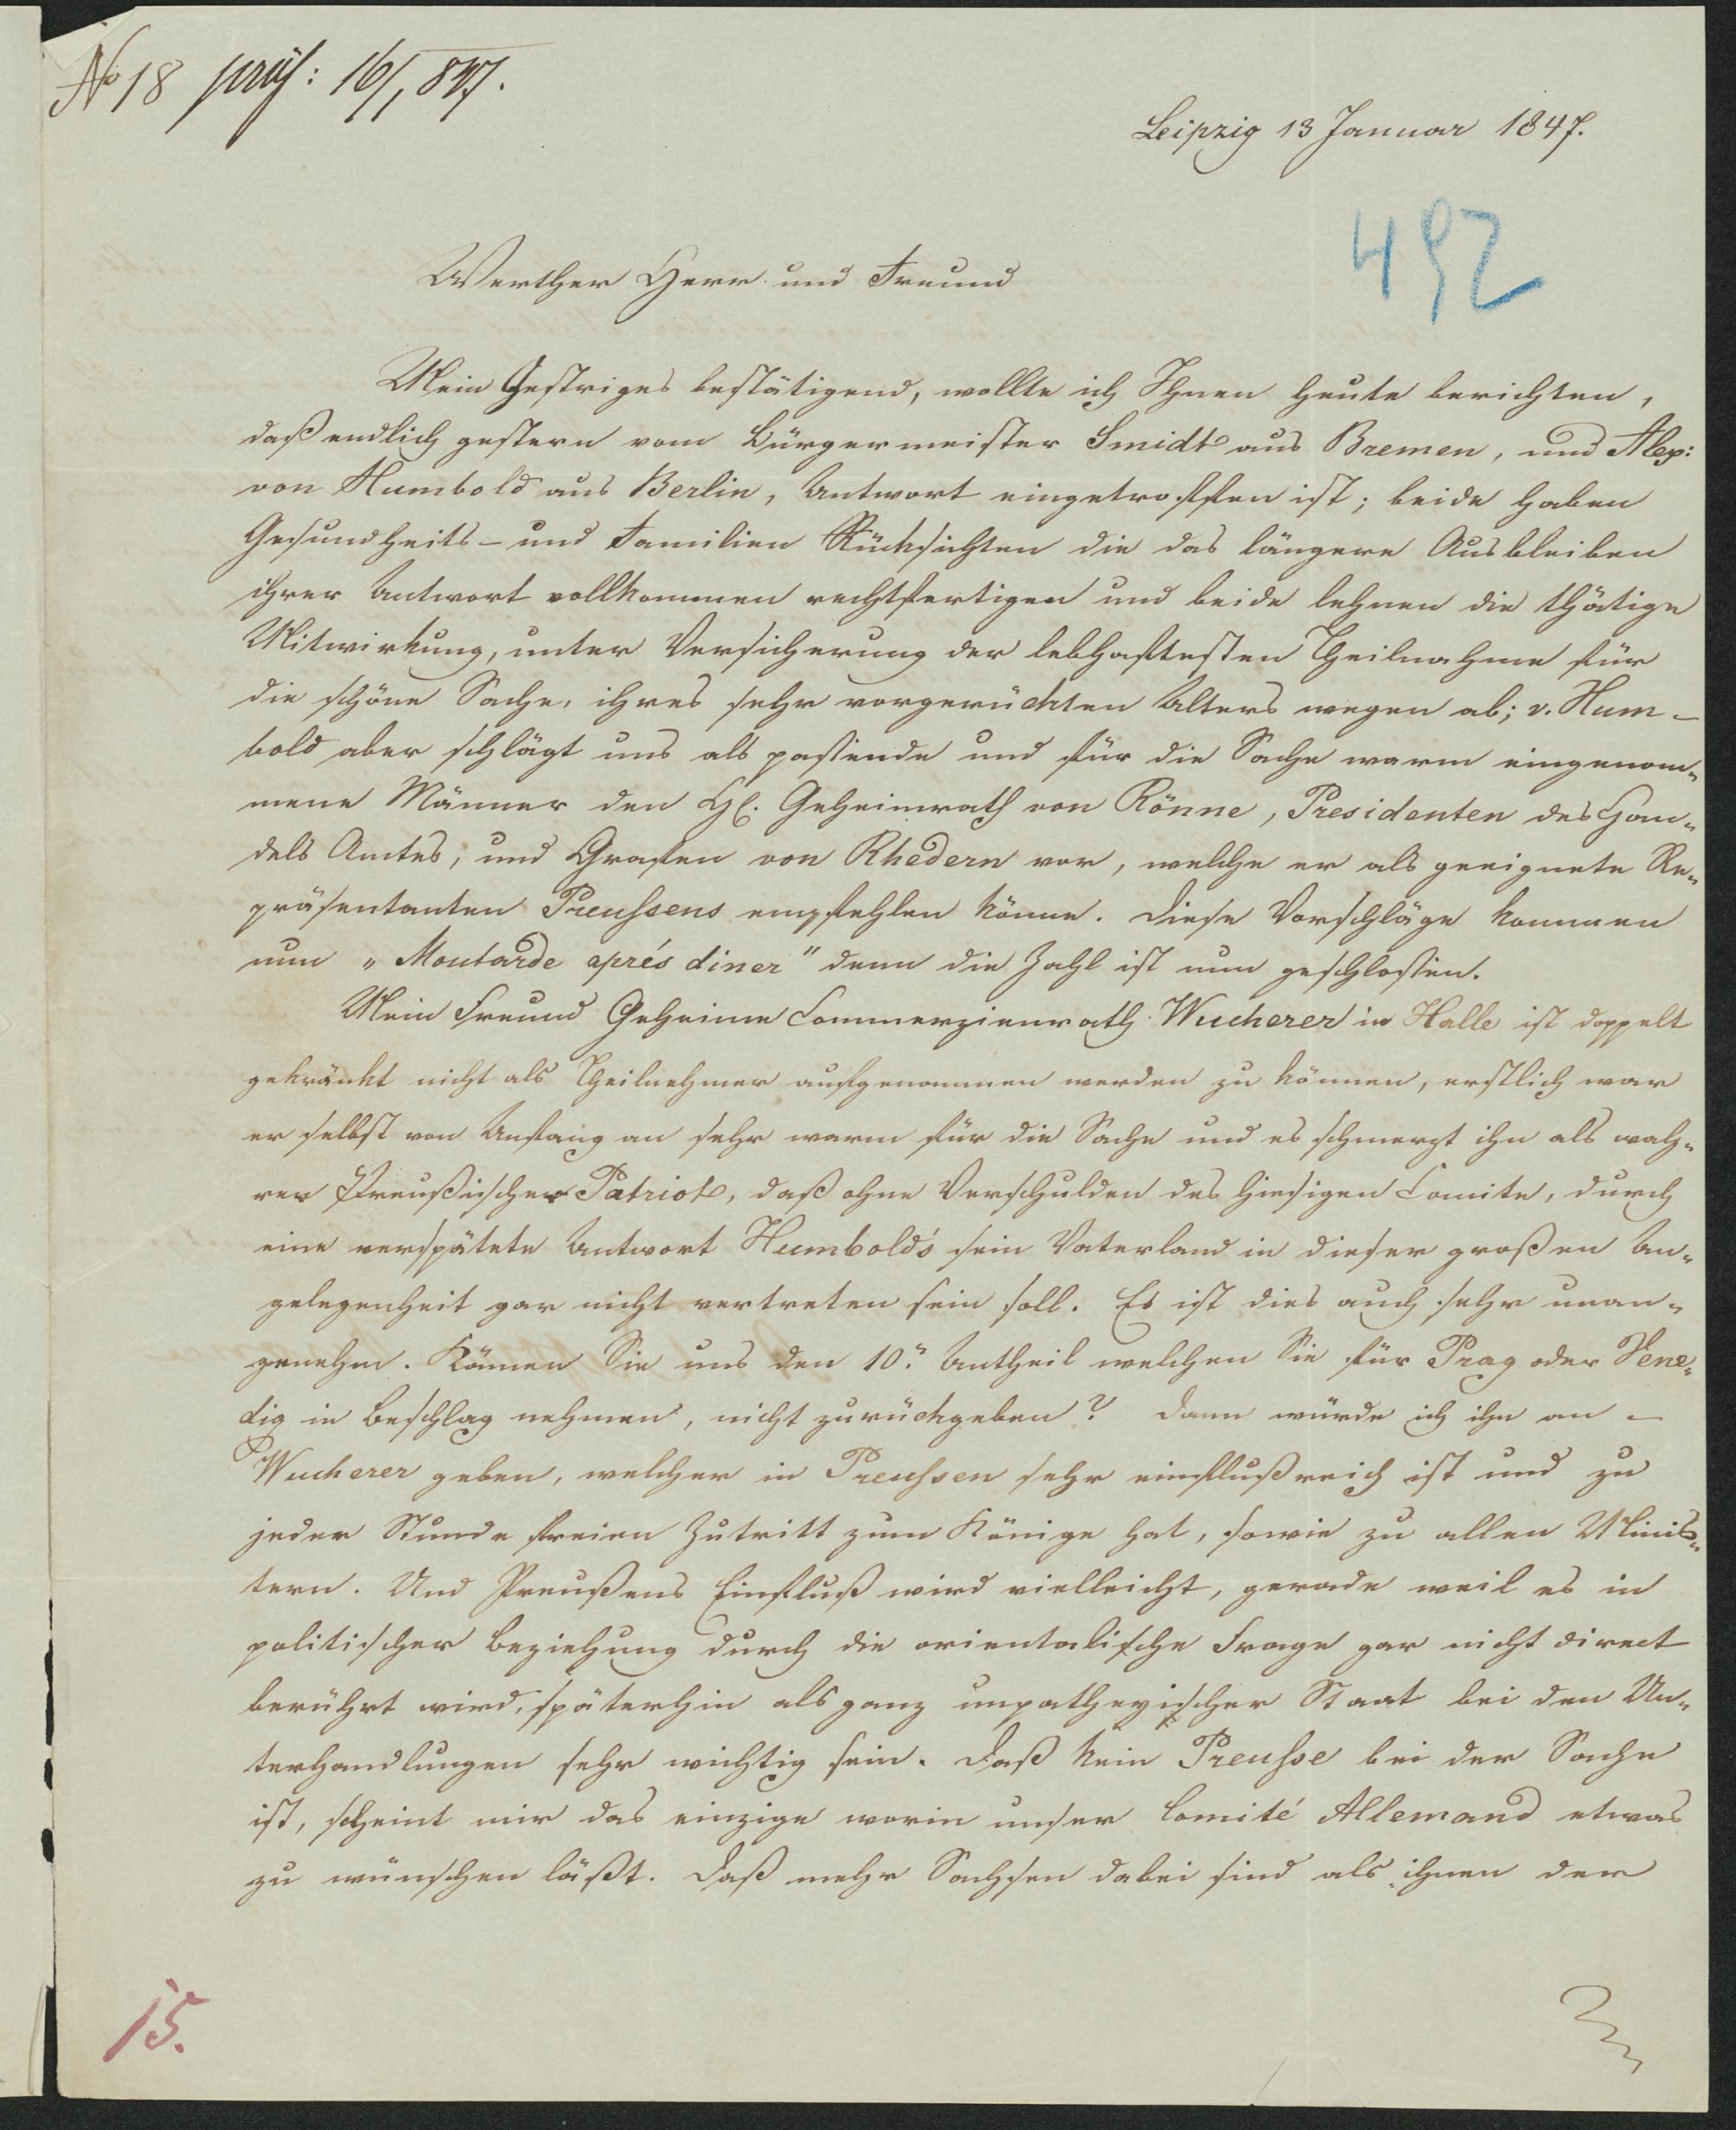 No 18 präs: 16/1 847.
Leipzig 13 Januar 1847.
492
Werther Herr und Freund
Mein Gestriges bestätigend, wollte ich Ihnen heute berichten,
daß endlich gestern vom Bürgermeister Smidt aus Bremen, und Alex:
von Humbold aus Berlin, Antwort eingetroffen ist; beide haben
Gesundheits- und Familien Rücksichten die das längere Ausbleiben
ihrer Antwort vollkommen rechtfertigen und beide lehnen die thätige
Mitwirkung, unter Versicherung der lebhaftesten Theilnahme für
die schöne Sache, ihres sehr vorgerückten Alters wegen ab; v. Hum-
bold aber schlägt uns als passende und für die Sache warm eingenom-
mene Männer den H. Geheimrath von Rönne, Presidenten des Han-
dels Amtes, und Grafen von Rhedern vor, welche er als geeignete Re-
präsentanten Preussens empfehlen könne. Diese Vorschläge kommen
nun „Moutarde aprés diner" denn die Zahl ist nun geschlossen.
Mein Freund Geheime Commerzienrath Wucherer in Halle ist doppelt
gekränkt nicht als Theilnehmer aufgenommen werden zu können, erstlich war
er selbst von Anfang an sehr warm für die Sache und es schmerzt ihn als wah-
rer Preußischer Patriot, daß ohne Verschulden des hiesigen Comite, durch
eine verspätete Antwort Humbold's sein Vaterland in dieser großen An-
gelegenheit gar nicht vertreten sein soll. Es ist dies auch sehr unan-
genehm. Können Sie uns den 10.n Antheil welchen Sie für Prag oder Vene-
dig in Beschlag nehmen, nicht zurückgeben? Dann würde ich ihn an
Wucherer geben, welcher in Preussen sehr einflußreich ist und zu
jeder Stunde freien Zutritt zum Könige hat, sowie zu allen Minis-
tern. Und Preußens Einfluß wird vielleicht, gerade weil es in
politischer Beziehung durch die orientalische Frage gar nicht direct
berührt wird, späterhin als ganz unpartheyischer Staat bei den Un-
terhandlungen sehr wichtig sein. Daß kein Preusse bei der Sache
ist, scheint mir das einzige worin unser Comité Allemand etwas
zu wünschen läßt. Daß mehr Sachsen dabei sind als ihnen der
15.